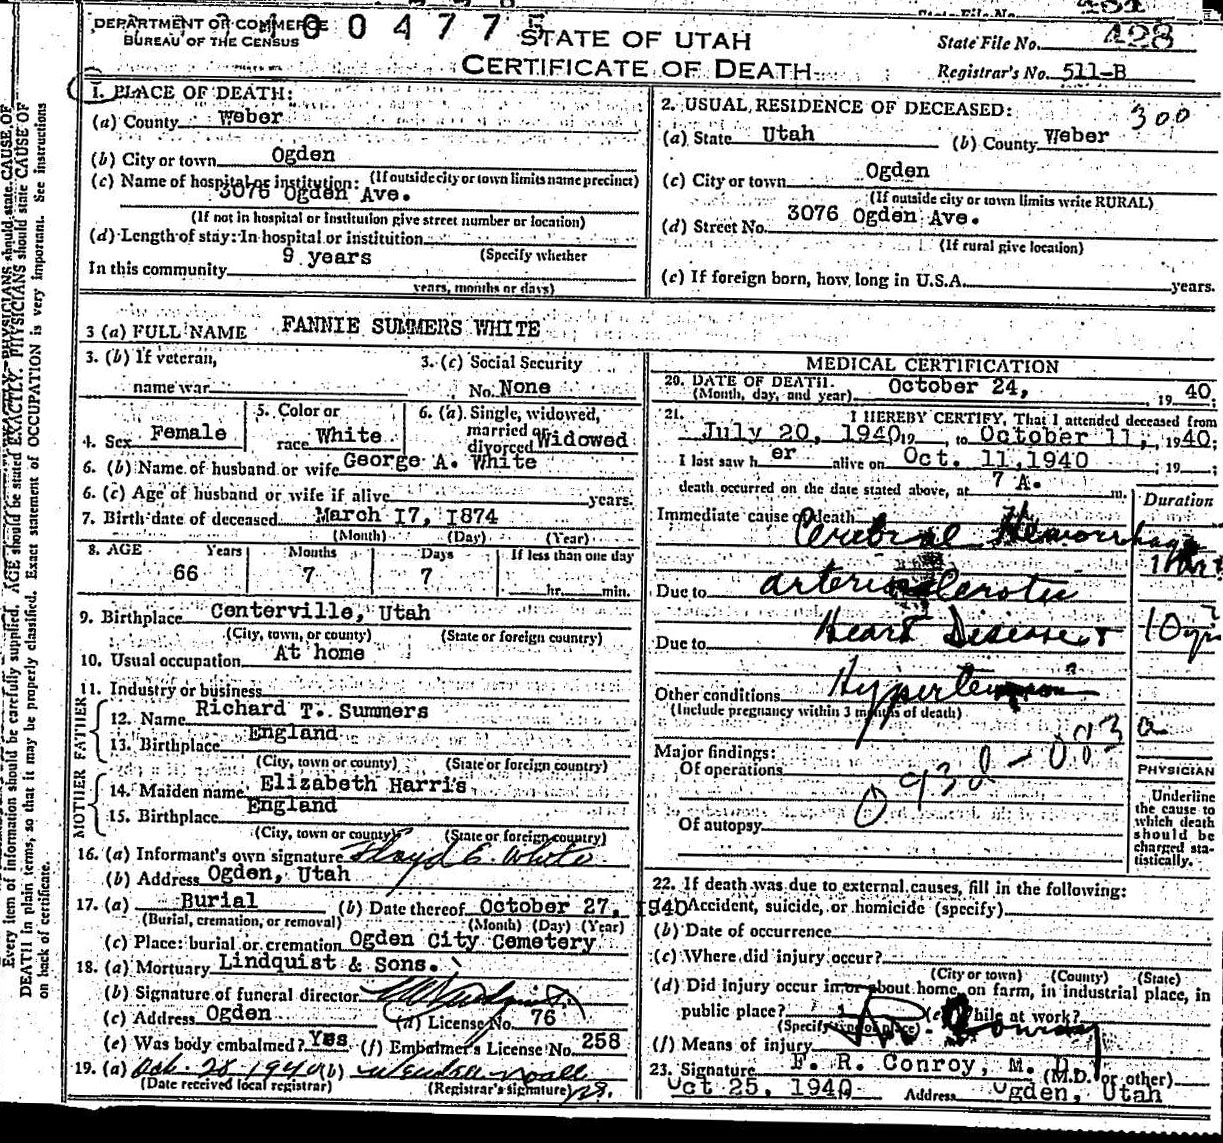 DEPARTMENT OF COMMERCE
BUREAU OF THE CENSUS
1004775
STATE OF UTAH
CERTIFICATE OF DEATH
State File No. 428
Registrar's No. 511-B
1. PLACE OF DEATH:
(a) County Weber
(b) City or town Ogden
(If outside city or town limits name precinct)
(c) Name of hospital or institution:
3076 Ogden Ave.
(If not in hospital or institution give street number or location)
(d) Length of stay: In hospital or institution
(Specify whether
In this community 9 years
years, months or days)
2. USUAL RESIDENCE OF DECEASED:
300
(a) State Utah (b) County Weber
(c) City or town Ogden
(If outside city or town limits write RURAL)
(d) Street No. 3076 Ogden Ave.
(If rural give location)
(e) If foreign born, how long in U.S.A. years.
3 (a) FULL NAME FANNIE SUMMERS WHITE
3. (b) If veteran,
name war
3. (c) Social Security
No. None
4. Sex Female
5. Color or
race White
6. (a) Single, widowed,
married or
divorced Widowed
6. (b) Name of husband or wife George A. White
6. (c) Age of husband or wife if alive years.
7. Birth date of deceased March 17, 1874
(Month) (Day) (Year)
8. AGE Years Months Days If less than one day
66 7 7 hr. min.
9. Birthplace Centerville, Utah
(City, town, or county) (State or foreign country)
10. Usual occupation At home
11. Industry or business
FATHER
12. Name Richard T. Summers
13. Birthplace England
(City, town or county) (State or foreign country)
MOTHER
14. Maiden name Elizabeth Harris
15. Birthplace England
(City, town or county) (State or foreign country)
16. (a) Informant's own signature Floyd E White
(b) Address Ogden, Utah
17. (a) Burial (b) Date thereof October 27, 1940
(Burial, cremation, or removal) (Month) (Day) (Year)
(c) Place: burial or cremation Ogden City Cemetery
18. (a) Mortuary Lindquist & Sons.
(b) Signature of funeral director
(c) Address Ogden (d) License No. 76
(e) Was body embalmed? Yes (f) Embalmer's License No. 258
19. (a) Oct. 28 1940 (b)
(Date received local registrar) (Registrar's signature)
MEDICAL CERTIFICATION
20. DATE OF DEATH.
(Month, day, and year) October 24, 1940
21. I HEREBY CERTIFY, That I attended deceased from
July 20, 1940 19 , to October 11, 1940;
I last saw h er alive on Oct. 11, 1940 ; 19 ;
death occurred on the date stated above, at 7 A. m.
Duration
Immediate cause of death Cerebral Hemorrhage
Due to arteriosclerotic
Due to Heart Disease &
10 yr
Other conditions Hypertension
(Include pregnancy within 3 months of death)
Major findings:
Of operations
Of autopsy
PHYSICIAN
Underline
the cause to
which death
should be
charged sta-
tistically.
22. If death was due to external causes, fill in the following:
(a) Accident, suicide, or homicide (specify)
(b) Date of occurrence
(c) Where did injury occur?
(City or town) (County) (State)
(d) Did injury occur in or about home, on farm, in industrial place, in
public place? (e) While at work?
(Specify type of place)
(f) Means of injury
23. Signature F. R. Conroy, M. D.
(M.D. or other)
Oct 25, 1940 Address Ogden, Utah
Every item of information should be carefully supplied. AGE should be stated EXACTLY. PHYSICIANS should state CAUSE OF
DEATH in plain terms, so that it may be properly classified. Exact statement of OCCUPATION is very important. See instructions
on back of certificate.